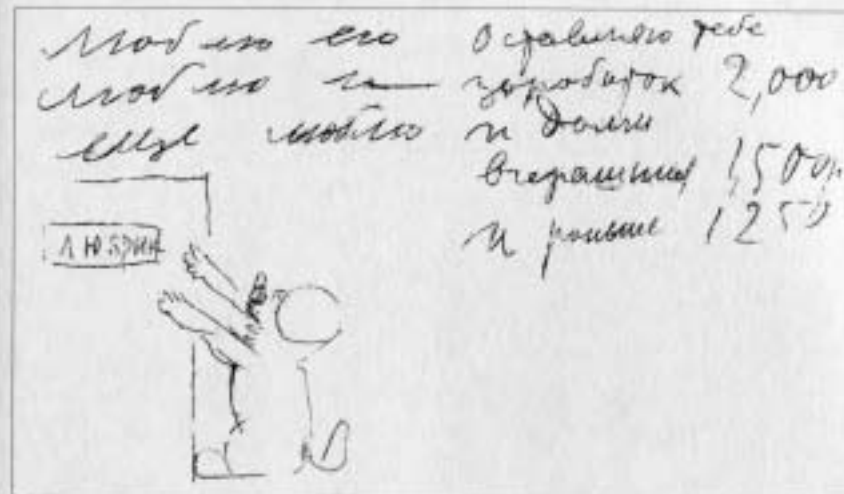 Люблю его
люблю и
еще люблю
Оставляю тебе
заработок 2,000
и долги
вчерашний 1,500р
и раньше 1250